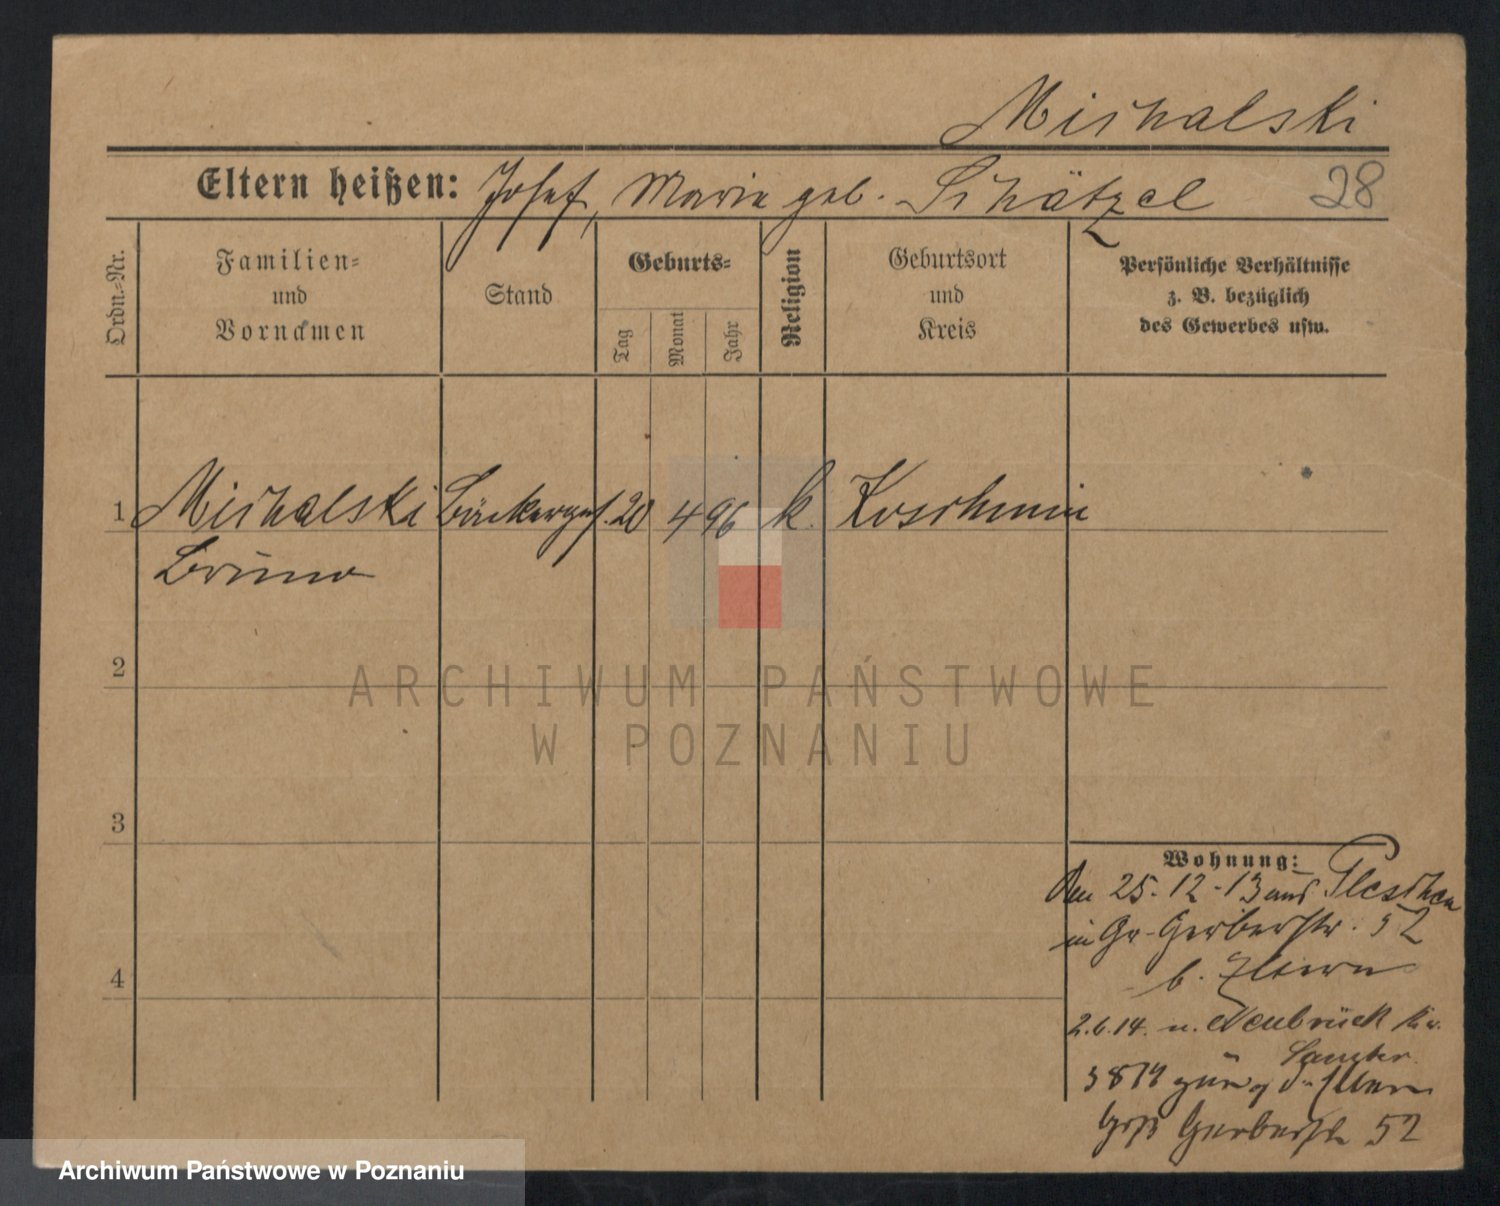 Michalski
Eltern heißen: Josef, Marie geb. Schätzel
28
Ordn.-Nr.
Familien-
und
Vornamen
Stand
Geburts-
Tag
Monat
Jahr
Religion
Geburtsort
und
Kreis
Persönliche Verhältnisse
z. B. bezüglich
des Gewerbes usw.
1 Michalski Bäckerges. 20 4 96 k. Koschmin
Bruno
2
3
4
Wohnung:
Den 25.12.13 aus Pleschen
in Gr. Gerberstr. 52
b. Eltern
2.6.14. n. Neubrück Kr.
Samter.
3 8 14 zur. Eltern
Gerberstr 52
ARCHIWUM PAŃSTWOWE
W POZNANIU
Archiwum Państwowe w Poznaniu